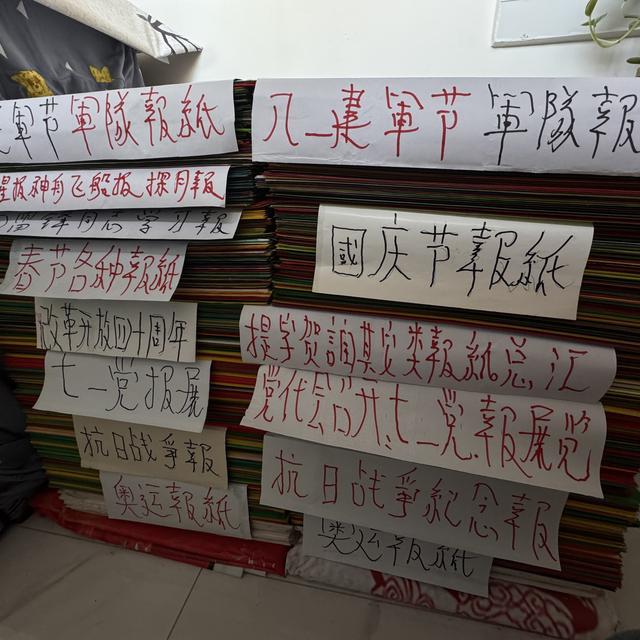 軍节軍隊報紙
星报神舟飞船报探月報
同志学习報
春节各种報紙
改革开放四十周年
七一党报展
抗日战爭報
奥运報紙
八一建軍节軍隊報
國庆节報紙
提字贺詞其它类報紙总汇
党代会召开七一党報展览
抗日战爭紀念報
奥运報紙